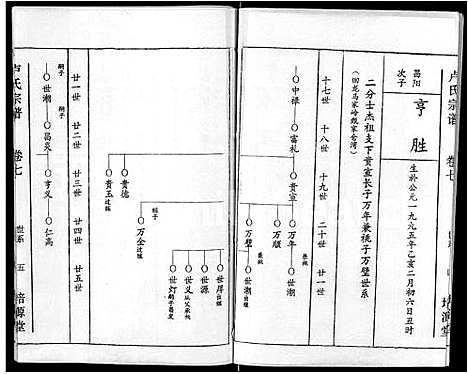 卢氏宗谱
卷七
培源堂
昌阳
次子
亨胜
生於公元一九九五年乙亥二月初六日丑时
二分士杰祖支下贵宣长子万年兼祧子万璧世系
十七世
十八世
十九世
二十世
中禄
富礼
贵宣
万年
兼祧
世潮
万顺
万璧
兼祧
世潮
贵德
贵玉过继
继子
万金过继
世厚出继
世源
世灯
廿一世
廿二世
廿三世
廿四世
廿五世
嗣子
世潮
嗣子
昌炎
亨义
仁高
卢氏宗谱
卷七
世系
五
培源堂